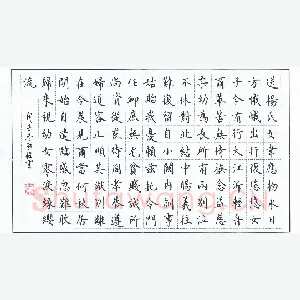 送楊氏女韋應物永日
方慼慼出行復悠悠女
子今有行大江泝輕舟
柔幼為長所育兩別泣
不休對此結中腸義往
難復留自小闕內訓事
姑貽我憂賴茲託令門
任卹庶無尤貧儉誠所
尚資從豈待周孝恭遵
婦道容止順其猷別離
在今晨見爾當何秋居
閒始自遣臨感忽難收
歸來視幼女零淚緣纓
流